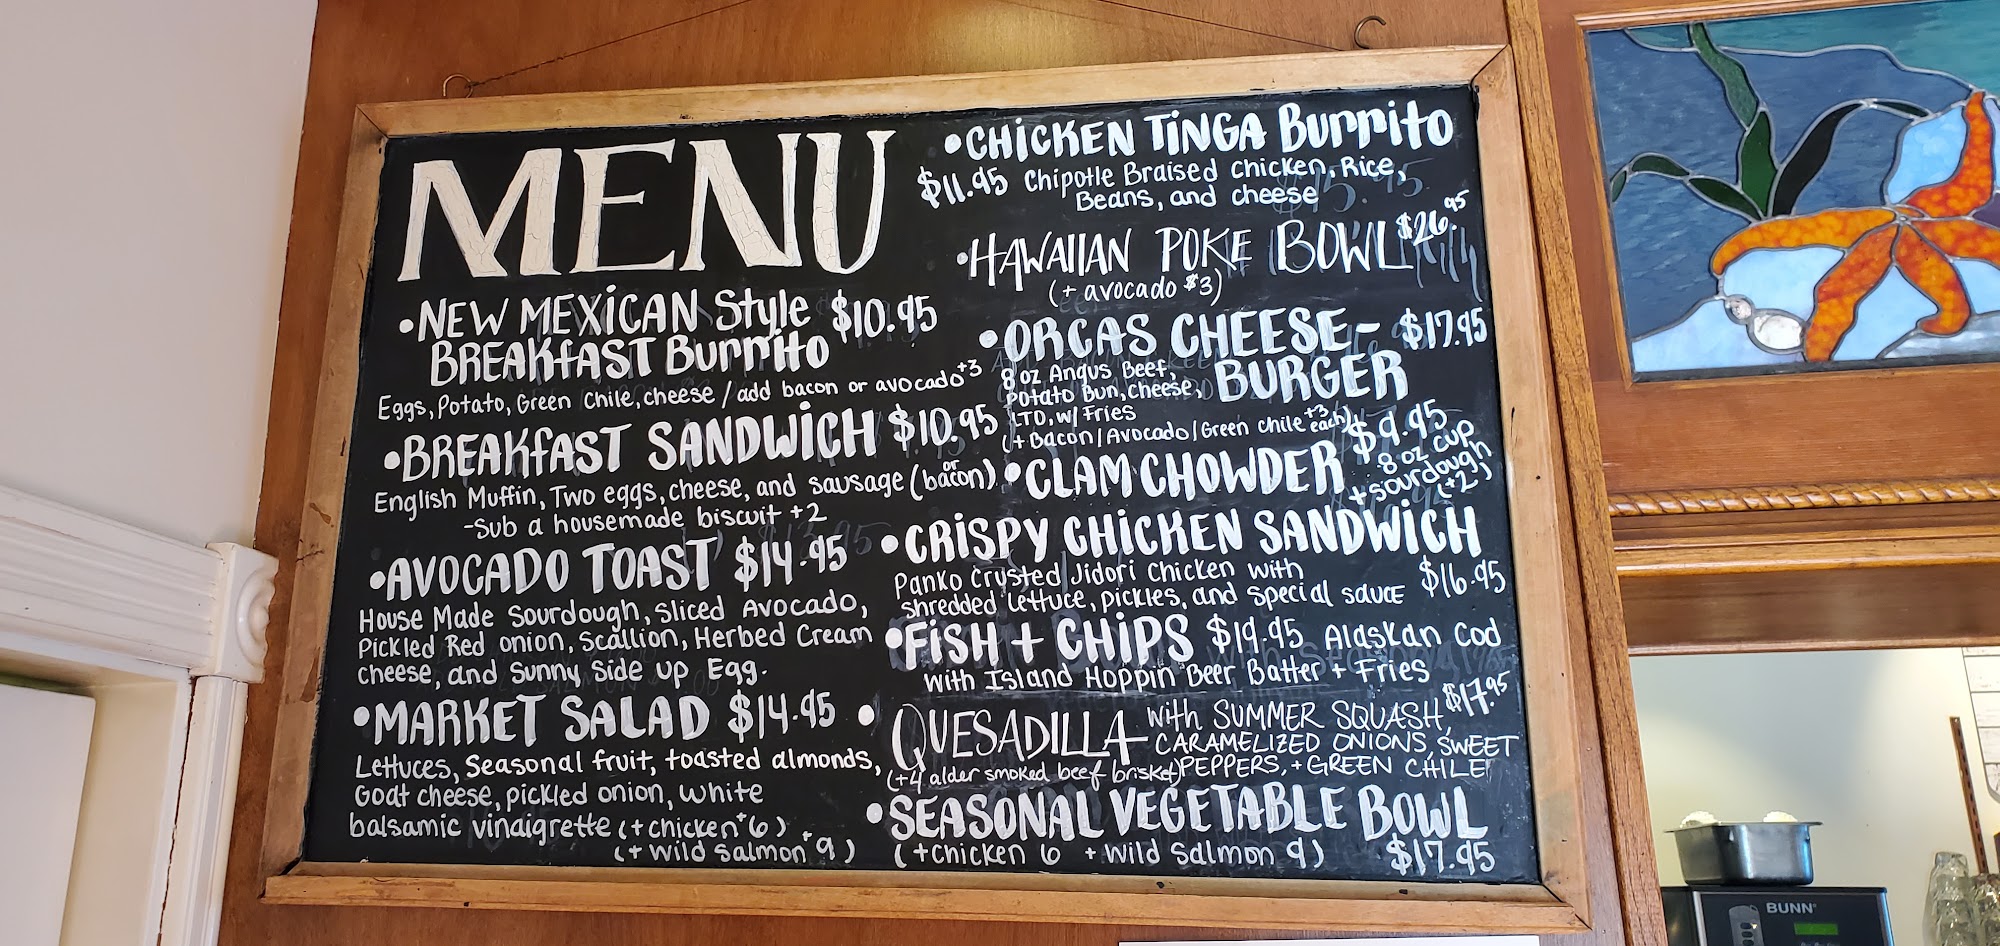 MENU
•NEW MEXICAN Style $10.95
BREAKfAST Burrito
Eggs, Potato, Green Chile, cheese / add bacon or avocado +3
•BREAKfAST SANDWiCH $10.95
English Muffin, Two eggs, cheese, and sausage (or bacon)
-Sub a housemade biscuit +2
•AVOCADO TOAST $14.95
House Made Sourdough, Sliced Avocado,
Pickled Red onion, Scallion, Herbed Cream
cheese, and Sunny Side up Egg.
•MARKET SALAD $14.95
Lettuces, Seasonal fruit, toasted almonds,
Goat cheese, pickled onion, white
balsamic vinaigrette (+chicken +6)
(+ Wild Salmon +9)
•CHiCKEN TiNGA Burrito
$11.95 Chipotle Braised Chicken, Rice,
Beans, and cheese
•HAWAIIAN POKE BOWL $26.95
(+ avocado $3)
•ORCAS CHEESE- $17.95
BURGER
8 oz Angus Beef,
Potato Bun, Cheese,
LTO, w/ Fries
(+ Bacon/Avocado/Green chile +3 each)
•CLAM CHOWDER $9.95
8 oz cup
+sourdough
(+2)
•CRiSPY CHiCKEN SANDWiCH
Panko Crusted Jidori Chicken with
shredded lettuce, pickles, and special sauce $16.95
•FiSH + CHiPS $19.95 Alaskan Cod
with Island Hoppin' Beer Batter + Fries
•QUESADILLA with SUMMER SQUASH, $17.95
CARAMELIZED ONIONS, SWEET
(+4 alder smoked beef brisket) PEPPERS, + GREEN CHILE
•SEASONAL VEGETABLE BOWL
(+chicken 6 + Wild Salmon 9) $17.95
BUNN